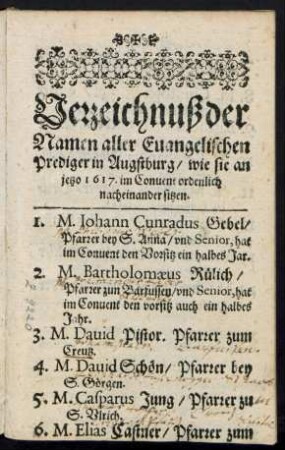 Verzeichnuß der
Namen aller Euangelischen
Prediger in Augspurg/ wie sie an
jetzo 1617. im Conuent ordenlich
nacheinander sitzen.
1. M. Iohann Cunradus Gebel/
Pfarrer bey S. Anna/ vnd Senior, hat
im Conuent den Vorsitz ein halbes Jar.
2. M. Bartholomæus Rülich/
Pfarrer zun Parfussen/ vnd Senior, hat
im Conuent den vorsitz auch ein halbes
Jahr.
3. M. Dauid Pistor. Pfarrer zum
Creutz.
4. M. Dauid Schön/ Pfarrer bey
S. Görgen.
5. M. Casparus Jung/ Pfarrer zu
S. Vlrich.
6. M. Elias Castner/ Pfarrer zum